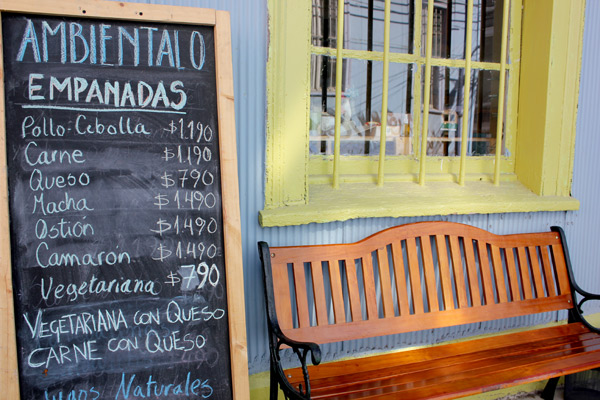 AMBIENTALO
EMPANADAS
Pollo-Cebolla $1.190
Carne $1.190
Queso $790
Macha $1.490
Ostión $1.490
Camarón $1.490
Vegetariana $790
VEGETARIANA CON QUESO
CARNE CON QUESO
Jugos Naturales